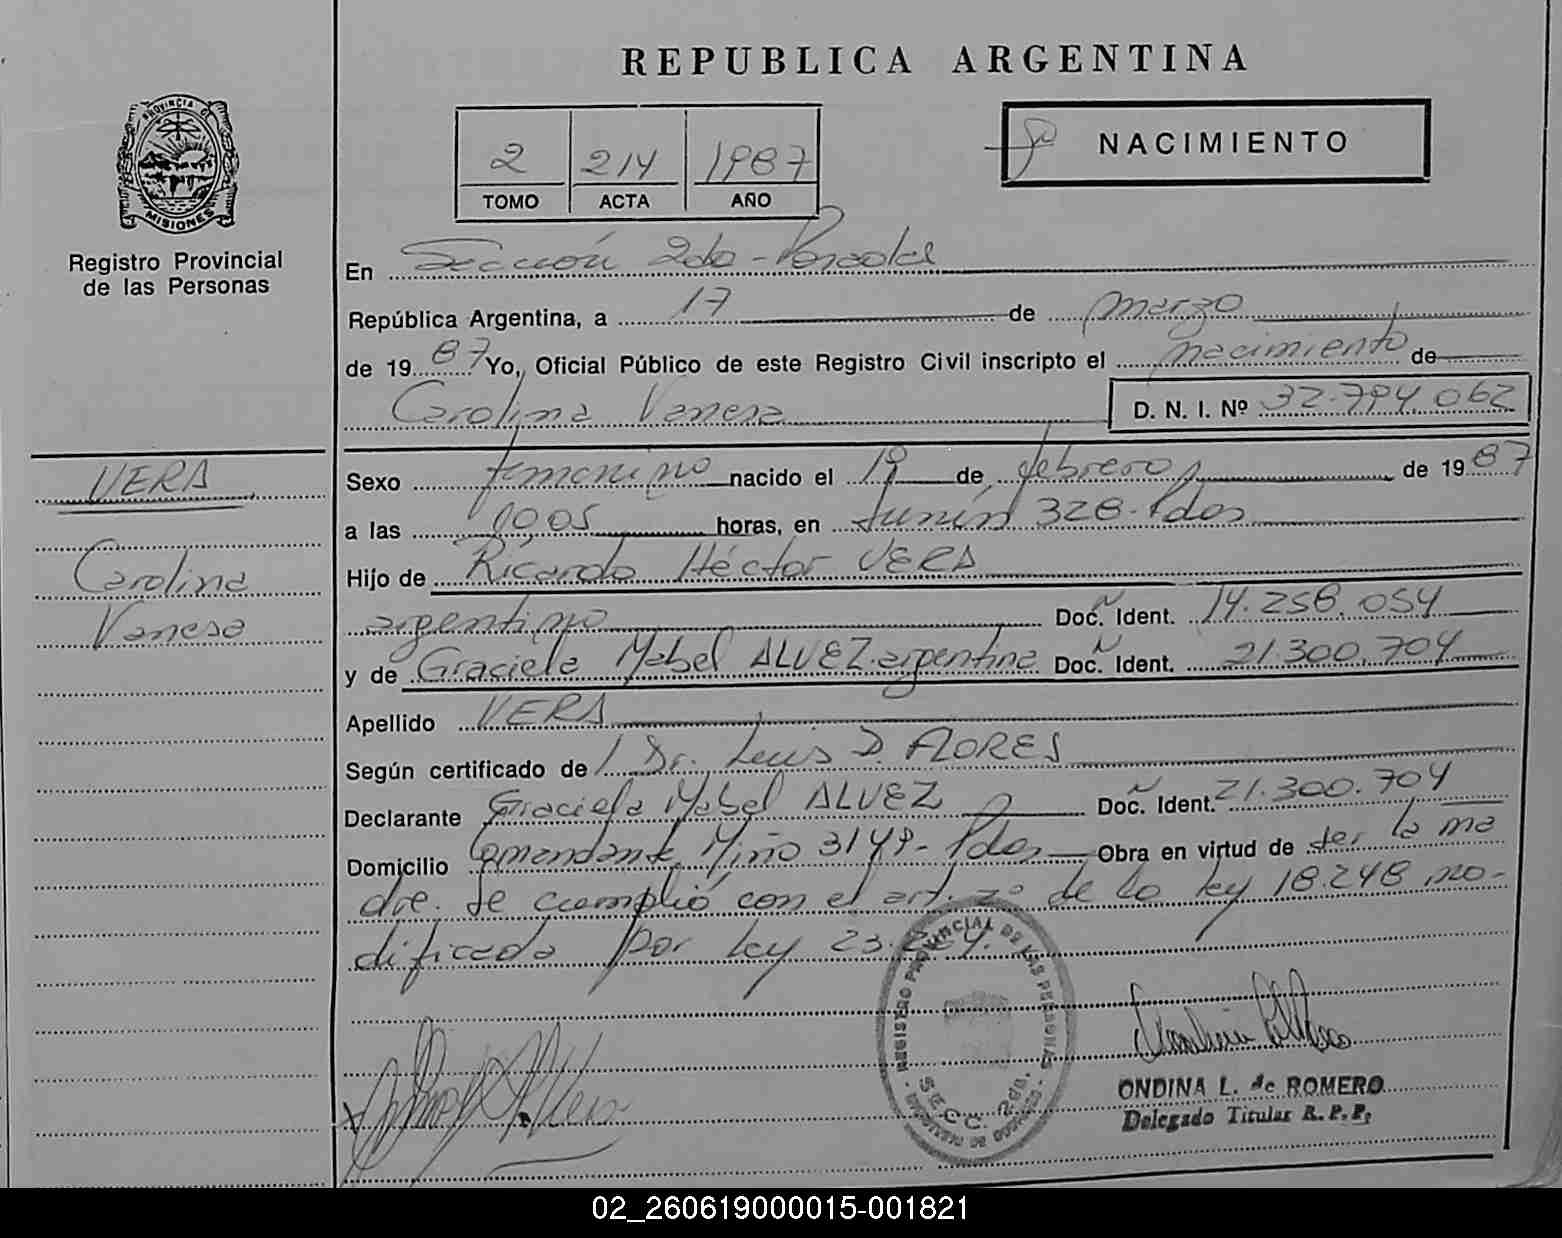 REPUBLICA ARGENTINA
PROVINCIA DE
MISIONES
Registro Provincial
de las Personas
2 214 1987
TOMO ACTA AÑO
NACIMIENTO
En Sección 2da - Posadas
República Argentina, a 17 de marzo
de 1987 Yo, Oficial Público de este Registro Civil inscripto el nacimiento de
Carolina Vanesa D. N. I. Nº 32.794.062
VERA
Carolina
Vanesa
Sexo femenino nacido el 19 de febrero de 1987
a las 10,05 horas, en Junín 328 - Pdas
Hijo de Ricardo Héctor VERA
argentino Doc. Ident. 14.258.054
y de Graciela Mabel ALVEZ argentina Doc. Ident. 21.300.704
Apellido VERA
Según certificado de Dr. Luis D. FLORES
Declarante Graciela Mabel ALVEZ Doc. Ident. 21.300.704
Domicilio Comandante Miño 3149 - Pdas Obra en virtud de ser la ma
dre. Se cumplió con el art. 2º de la ley 18.248 mo-
dificada por ley 23.264.
REGISTRO PROVINCIAL DE LAS PERSONAS
SECC. 2da.
ONDINA L. de ROMERO
Delegado Titular R. P. P.
02_260619000015-001821